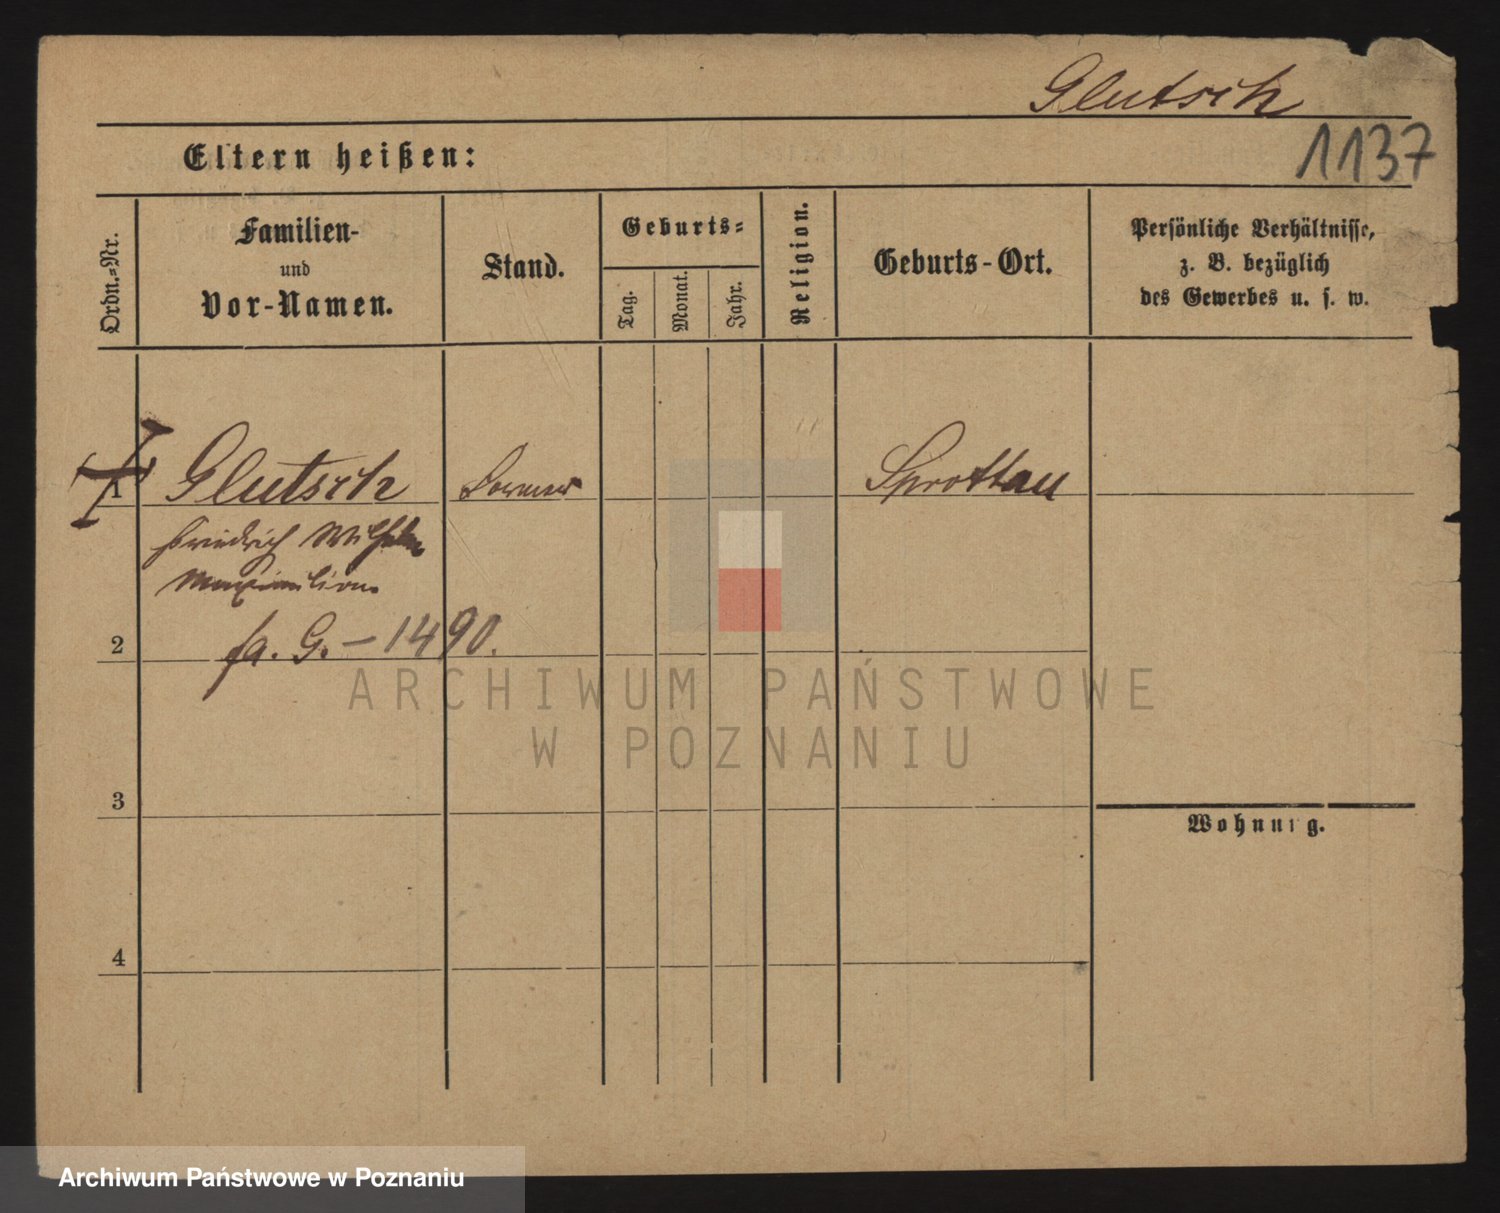 Glutsch
1137
Eltern heißen:
Ordn.-Nr.
Familien-
und
Vor-Namen.
Stand.
Geburts-
Tag.
Monat.
Jahr.
Religion.
Geburts-Ort.
Persönliche Verhältnisse,
z. B. bezüglich
des Gewerbes u. s. w.
1 Glutsch Sprottau
Friedrich Wilhelm
Maximilian
2 fa. G. - 1490.
ARCHIWUM PAŃSTWOWE
W POZNANIU
3
Wohnung.
4
Archiwum Państwowe w Poznaniu